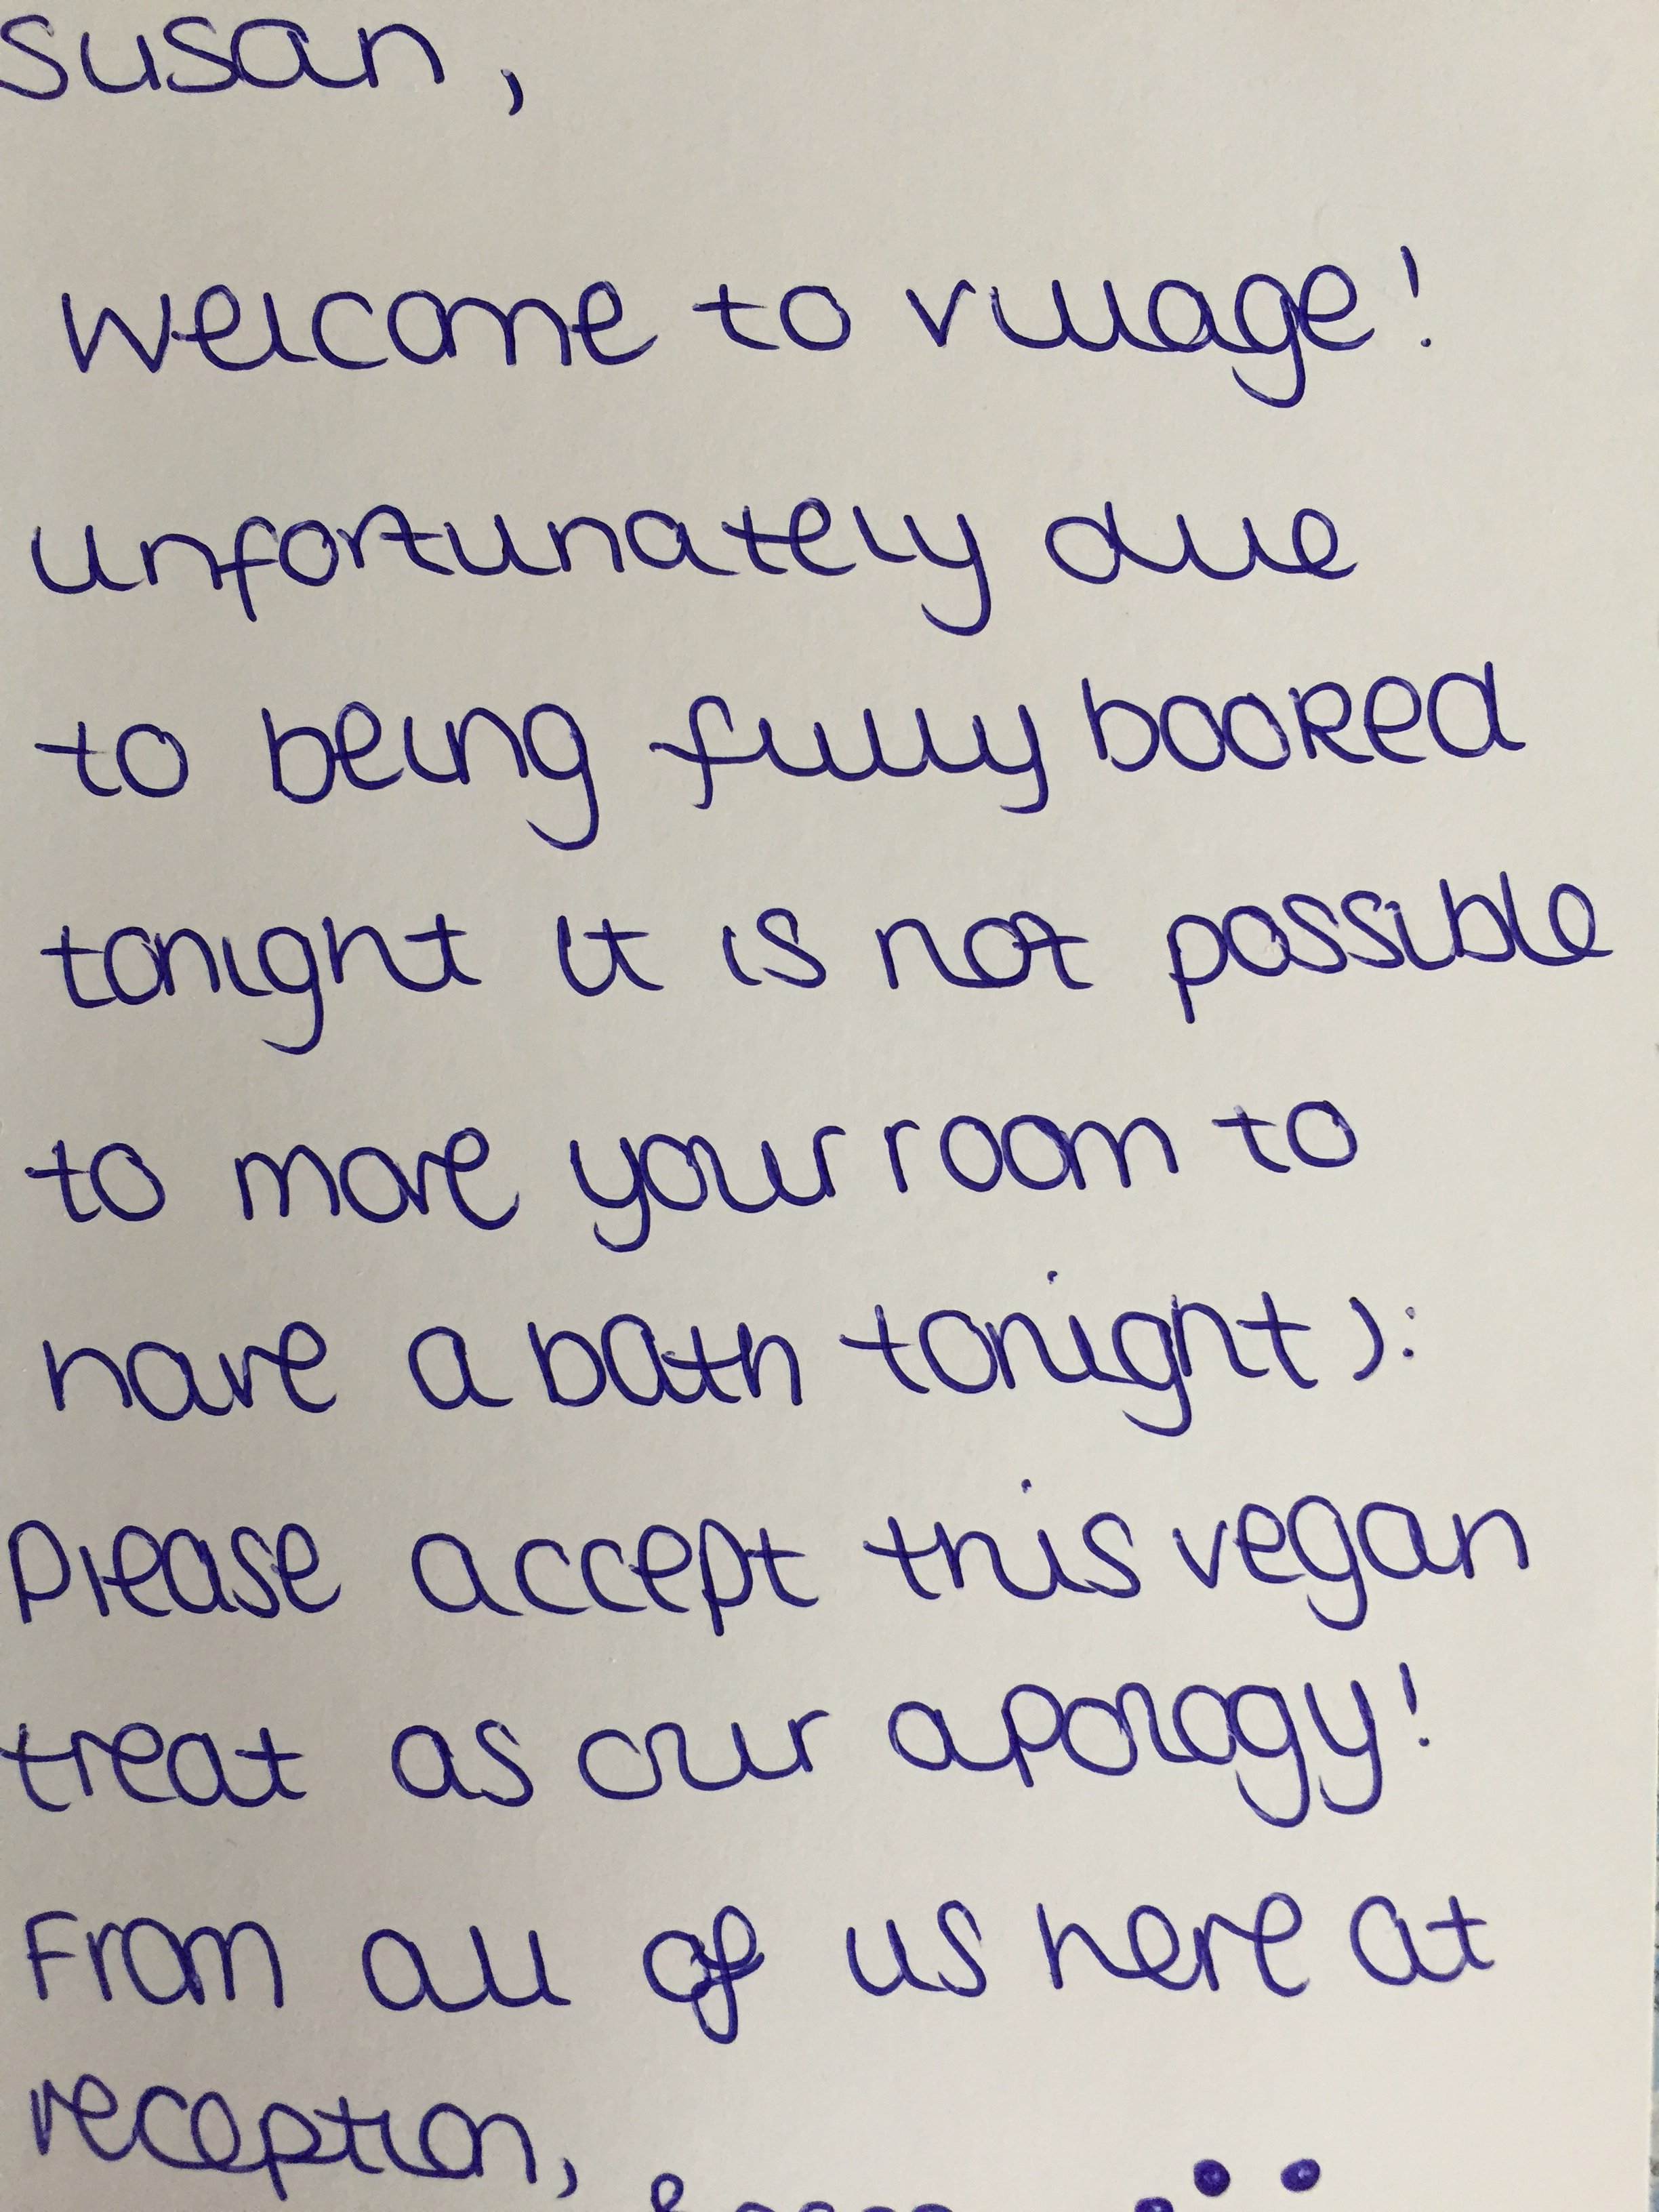 Susan,
Welcome to Village!
Unfortunately due
to being fully booked
tonight it is not possible
to move your room to
have a bath tonight ):
Please accept this vegan
treat as our apology!
From all of us here at
reception,